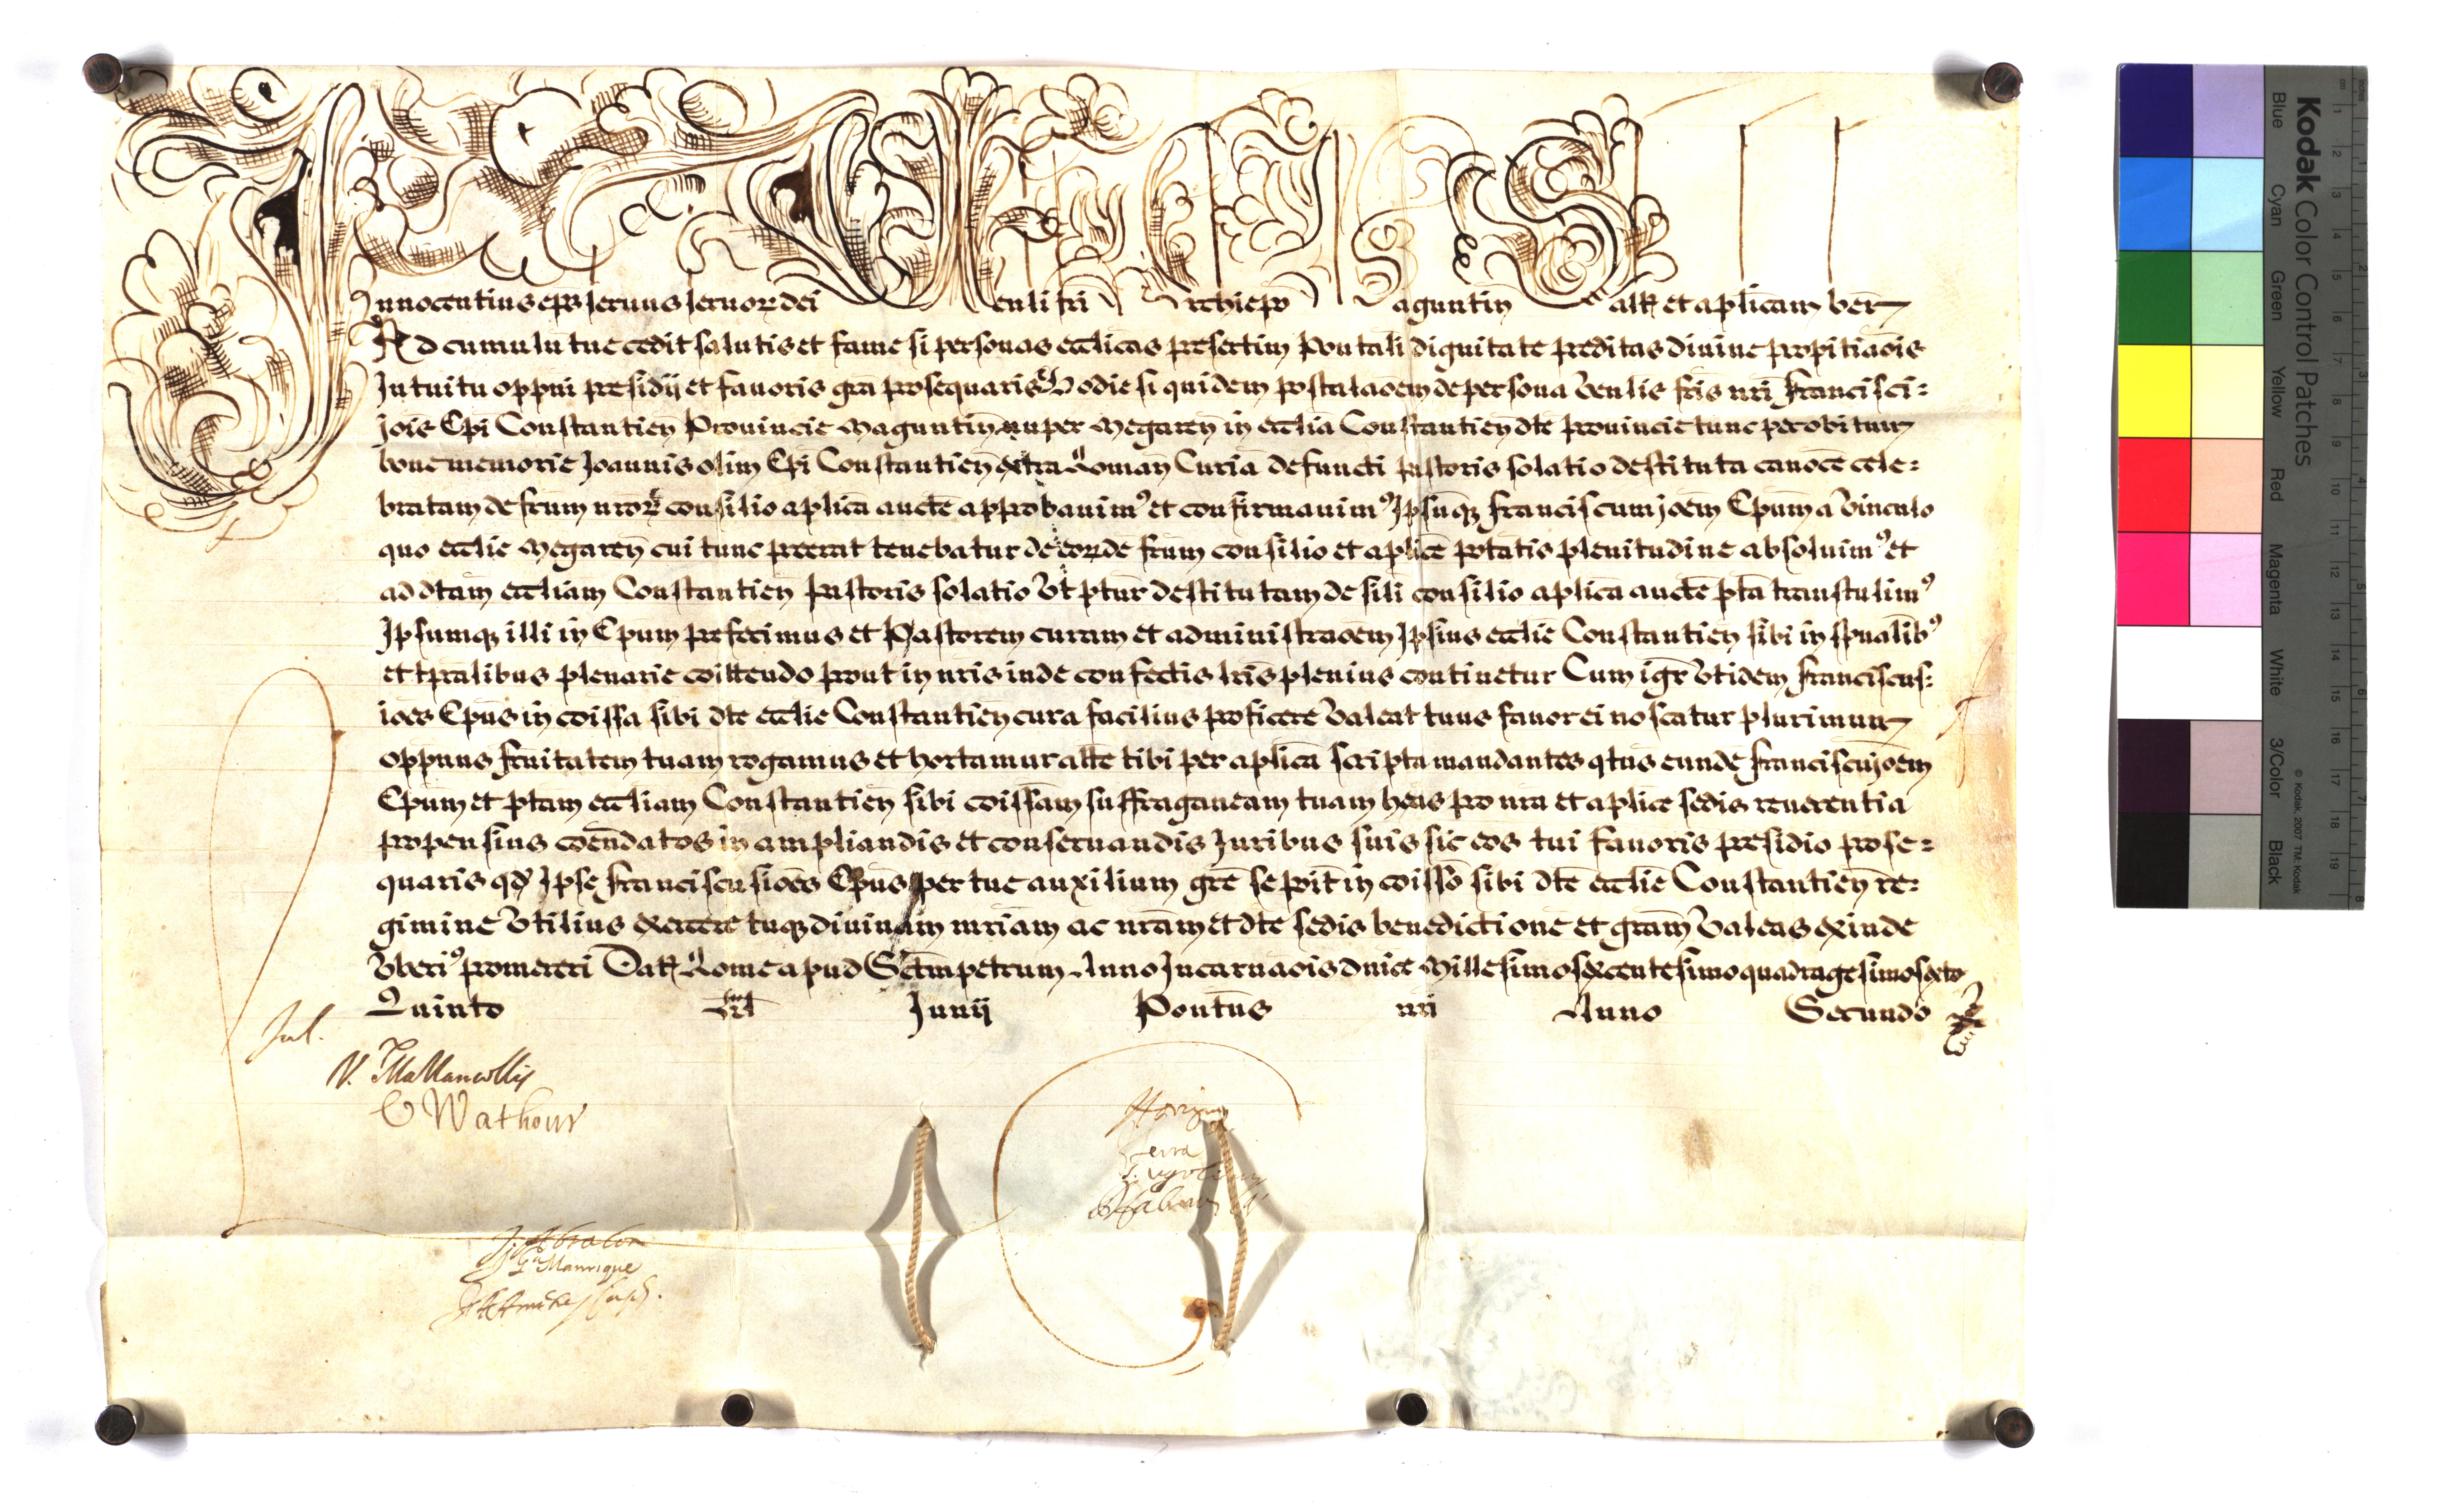 Innocentius eps seruus seruoꝝ dei Venli fri Archiepo Maguntin̄ Saltꝫ et aplicam ben̄
Ad cumulū tue cedit salutis et fame si personas eccl̄icas presertim Pontali dignitate preditas diuine propitiaōis
Intuitu oppni presidij et fauoris gr̄a prosequaris Hodie si quidem postulaōem de persona Venlis fr̄is nr̄i Francisci:
jois Ep̄i Constantien̄ Prouincie Maguntin̄ nuper Megaren̄ in eccl̄ia Constantien̄ dt̄e prouincie tunc per obitum
bone memorie Joannis olim Ep̄i Constantien̄ extra Roman̄ Curiā defuncti pastoris solatio destituta canoce cele:
bratam de frum nr̄oꝝ consilio aplica aucte approbauim⁹ et confirmauim⁹ Ipsūqꝫ Franciscum joem Epum a Vinculo
quo eccl̄ie Megaren̄ cui tunc preerat tenebatur de eorde frum consilio et aplice ptatis plenitudine absoluim⁹ et
ad dtam eccliam Constantien̄ pastoris solatio Vt ptur destitutam de sili consilio aplica aucte pta transtulim⁹
Ipsumqꝫ illi in Epum prefecimus et Pastorem curam et administraōem Ipsius eccl̄ie Constantien̄ sibi in spualib⁹
et tpralibus plenarie coittendo prout in nris inde confectis lr̄is plenius continetur Cum igr̄ Vt idem Franciscus:
joes Epus in coissa sibi dte eccl̄ie Constantien̄ cura facilius proficere Valeat tuus fauor ei noscatur plurimum
oppnus frnitatem tuam rogamus et hortamur atte tibi per aplica scripta mandantes qtus eundē Franciscū joem
Epum et ptam eccliam Constantien̄ sibi coissam suffraganeam tuam hēns pro nra et aplice sedis reuerentia
propensius coendatos in ampliandis et conseruandis Juribus suis sic eos tui fauoris presidio prose:
quaris qđ Ipse Franciscus joes Epus per tue auxilium gre se poit in coisso sibi dte ecclie Constantien̄ re:
gimine Vtilius exercere tuqꝫ diuinam mriam ac nram et dte sedis benedictione et gram Valeas exinde
Vberi⁹ promereri Datꝫ Rome apud Sctm petrum Anno Incarnaois dnice Millesimosexcentesimoquadragesimosexto
Quinto Junij Pontus nri Anno Secundo
Jul.
G Manrique